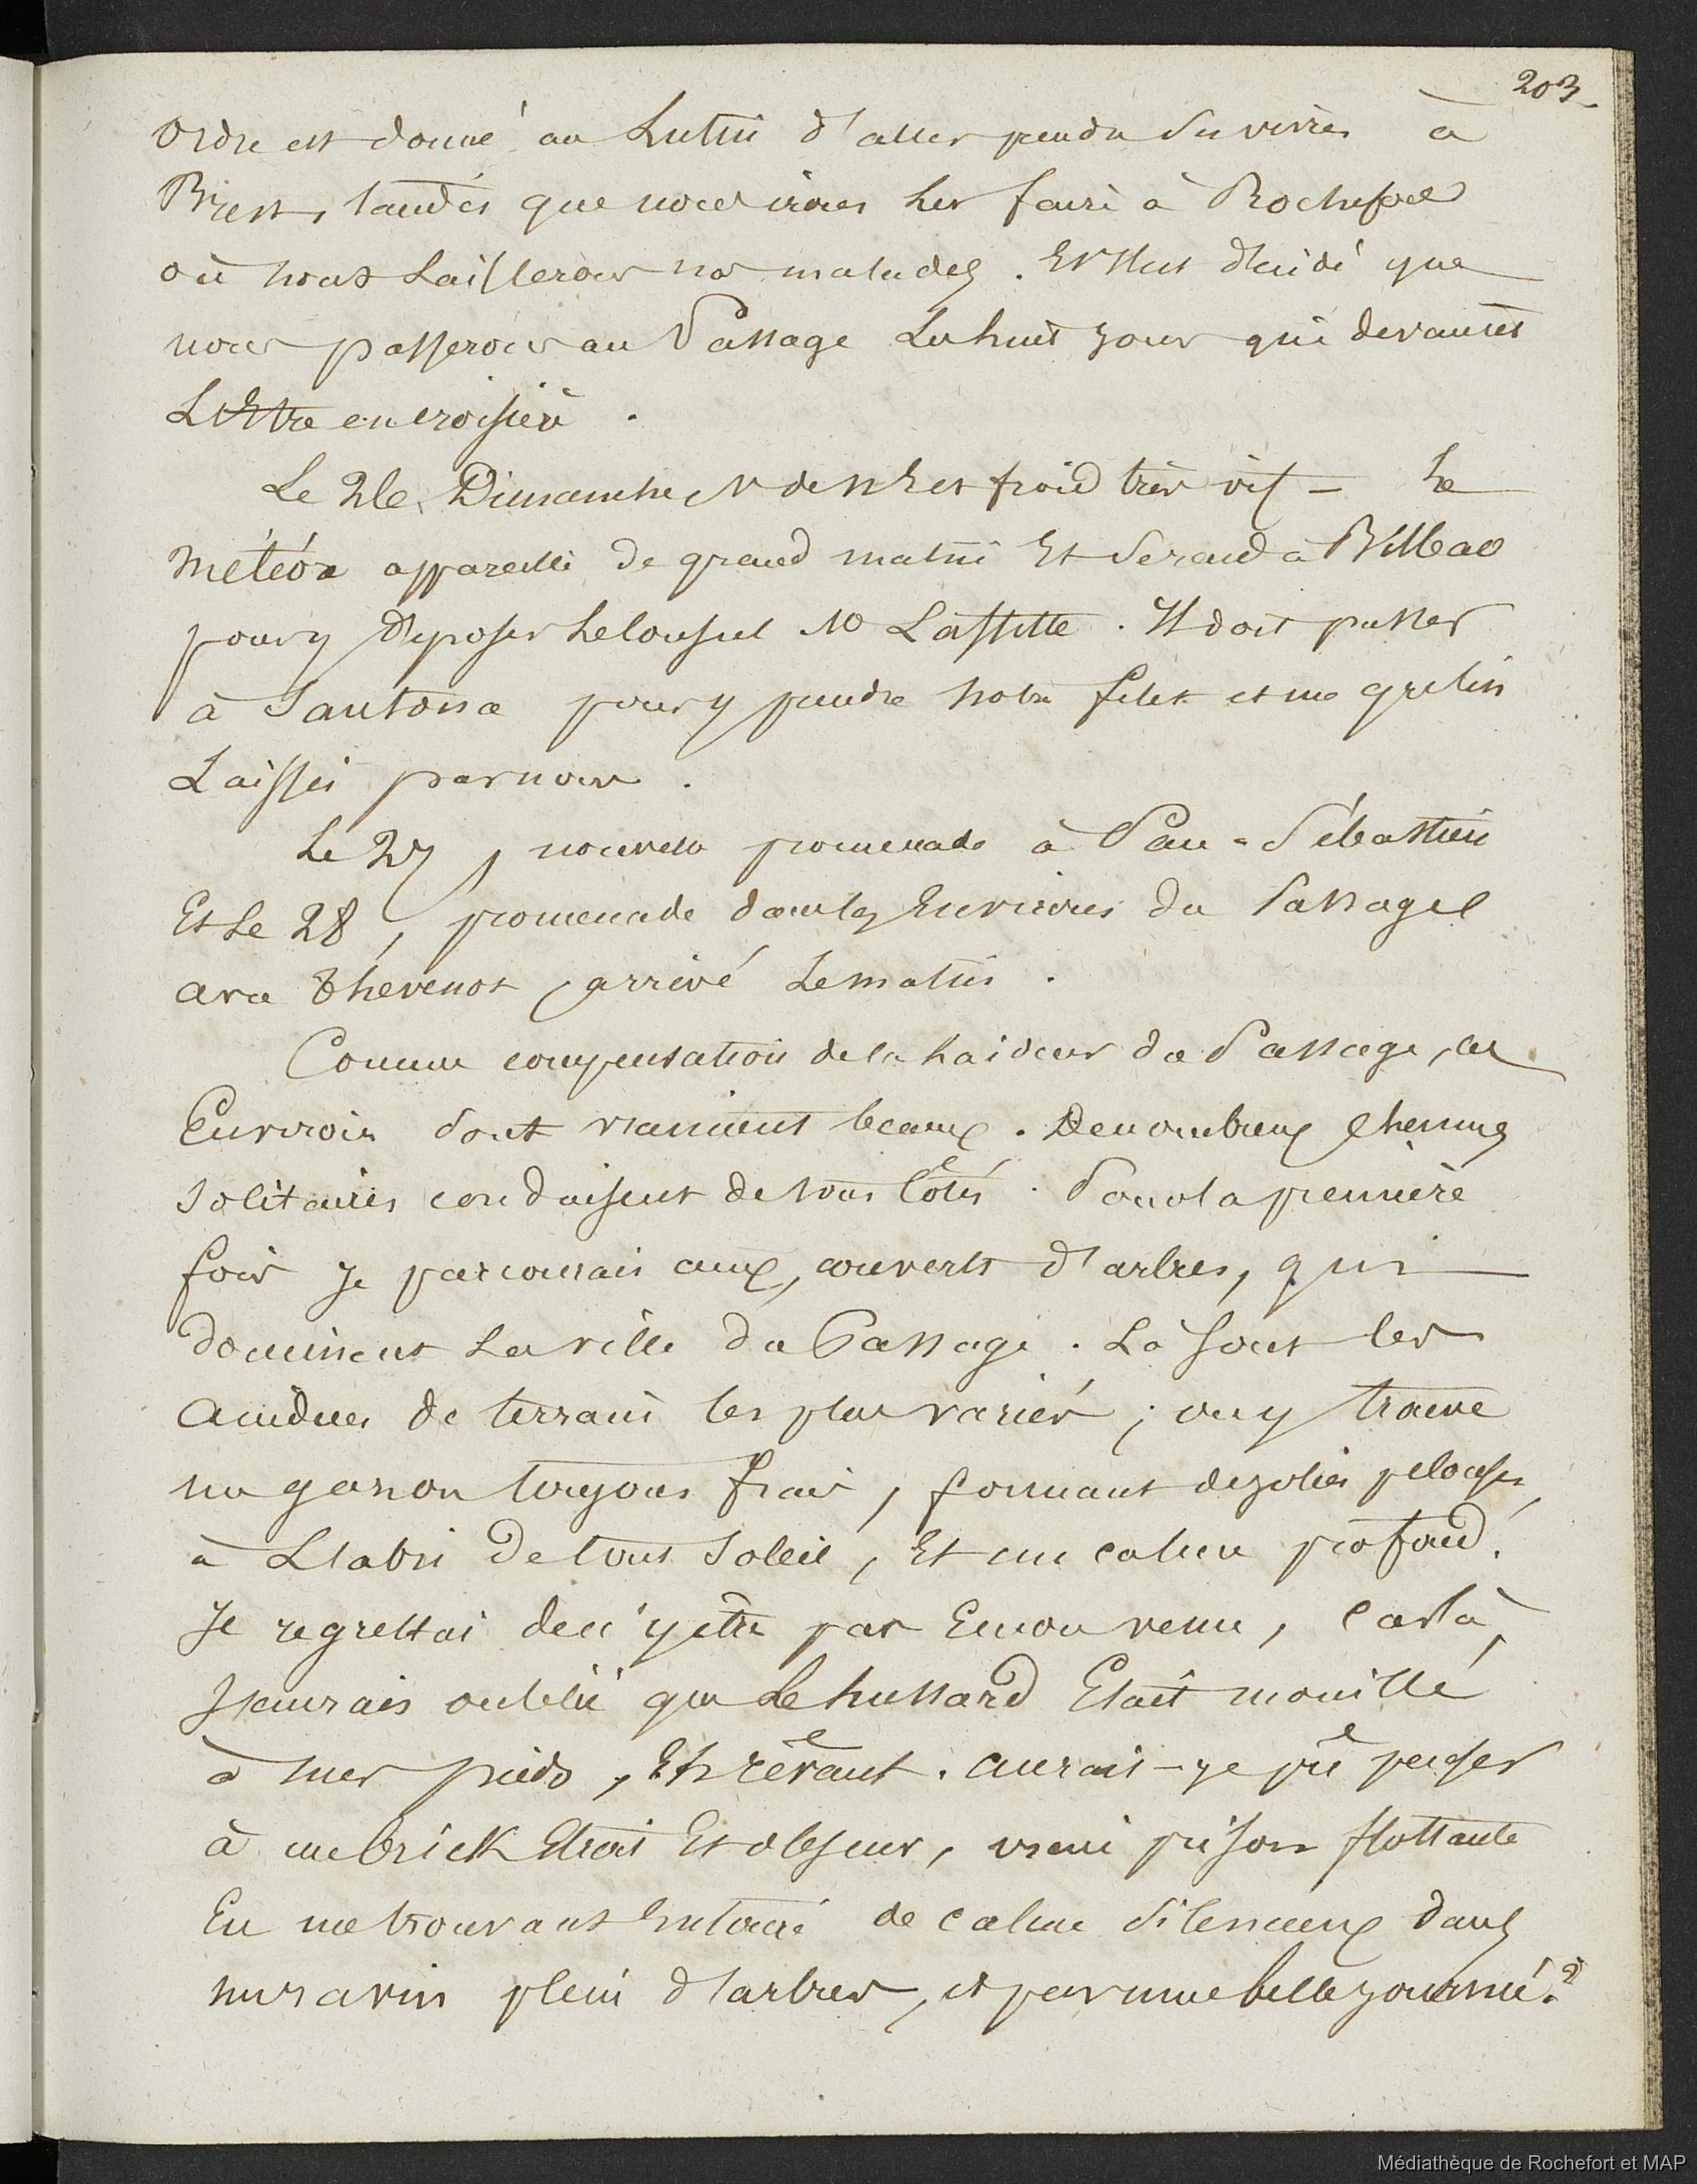 203
Ordre est donné au Lutin d'aller prendre des vivres à
Brest, tandis que nous irons les faire à Rochefort
où nous laisserons nos malades. Et il est décidé que
nous passerons au Passage les huit jours qui devaient
l'être en croisière.
Le 26, Dimanche, froid très vif – Le
Météore appareille de grand matin Et se rend à Bilbao
pour y déposer le consul M Laffitte. Il doit passer
à Santona pour y prendre notre filet et un grelin
Laissés par nous.
Le 27, nouvelle promenade à San-Sébastien
Et Le 28, promenade dans les Environs du Passage
avec Thévenot, arrivé Le matin.
Comme compensation de la laideur du Passage, les
Environs sont vraiment beaux. De nombreux Chemins
solitaires conduisent de tous Côtés. Pour la première
fois je parcourais ceux, couverts d'arbres, qui
dominent La ville du Passage. Là sont les
accidens de terrain les plus variés; on y trouve
un gazon toujours frais, formant de jolies pelouses,
à L'abri de tout soleil, Et un calme profond.
Je regrettai de n'y être pas Encore venu, car là,
J'aurais oublié que Le hussard Etait mouillé
à mes pieds, Et rêvant. aurais-je pû penser
à un brick Etroit Et obscur, vraie prison flottante
En me trouvant Entouré de calme silencieux dans
un ravin plein d'arbres, et par une belle journée?
Médiathèque de Rochefort et MAP